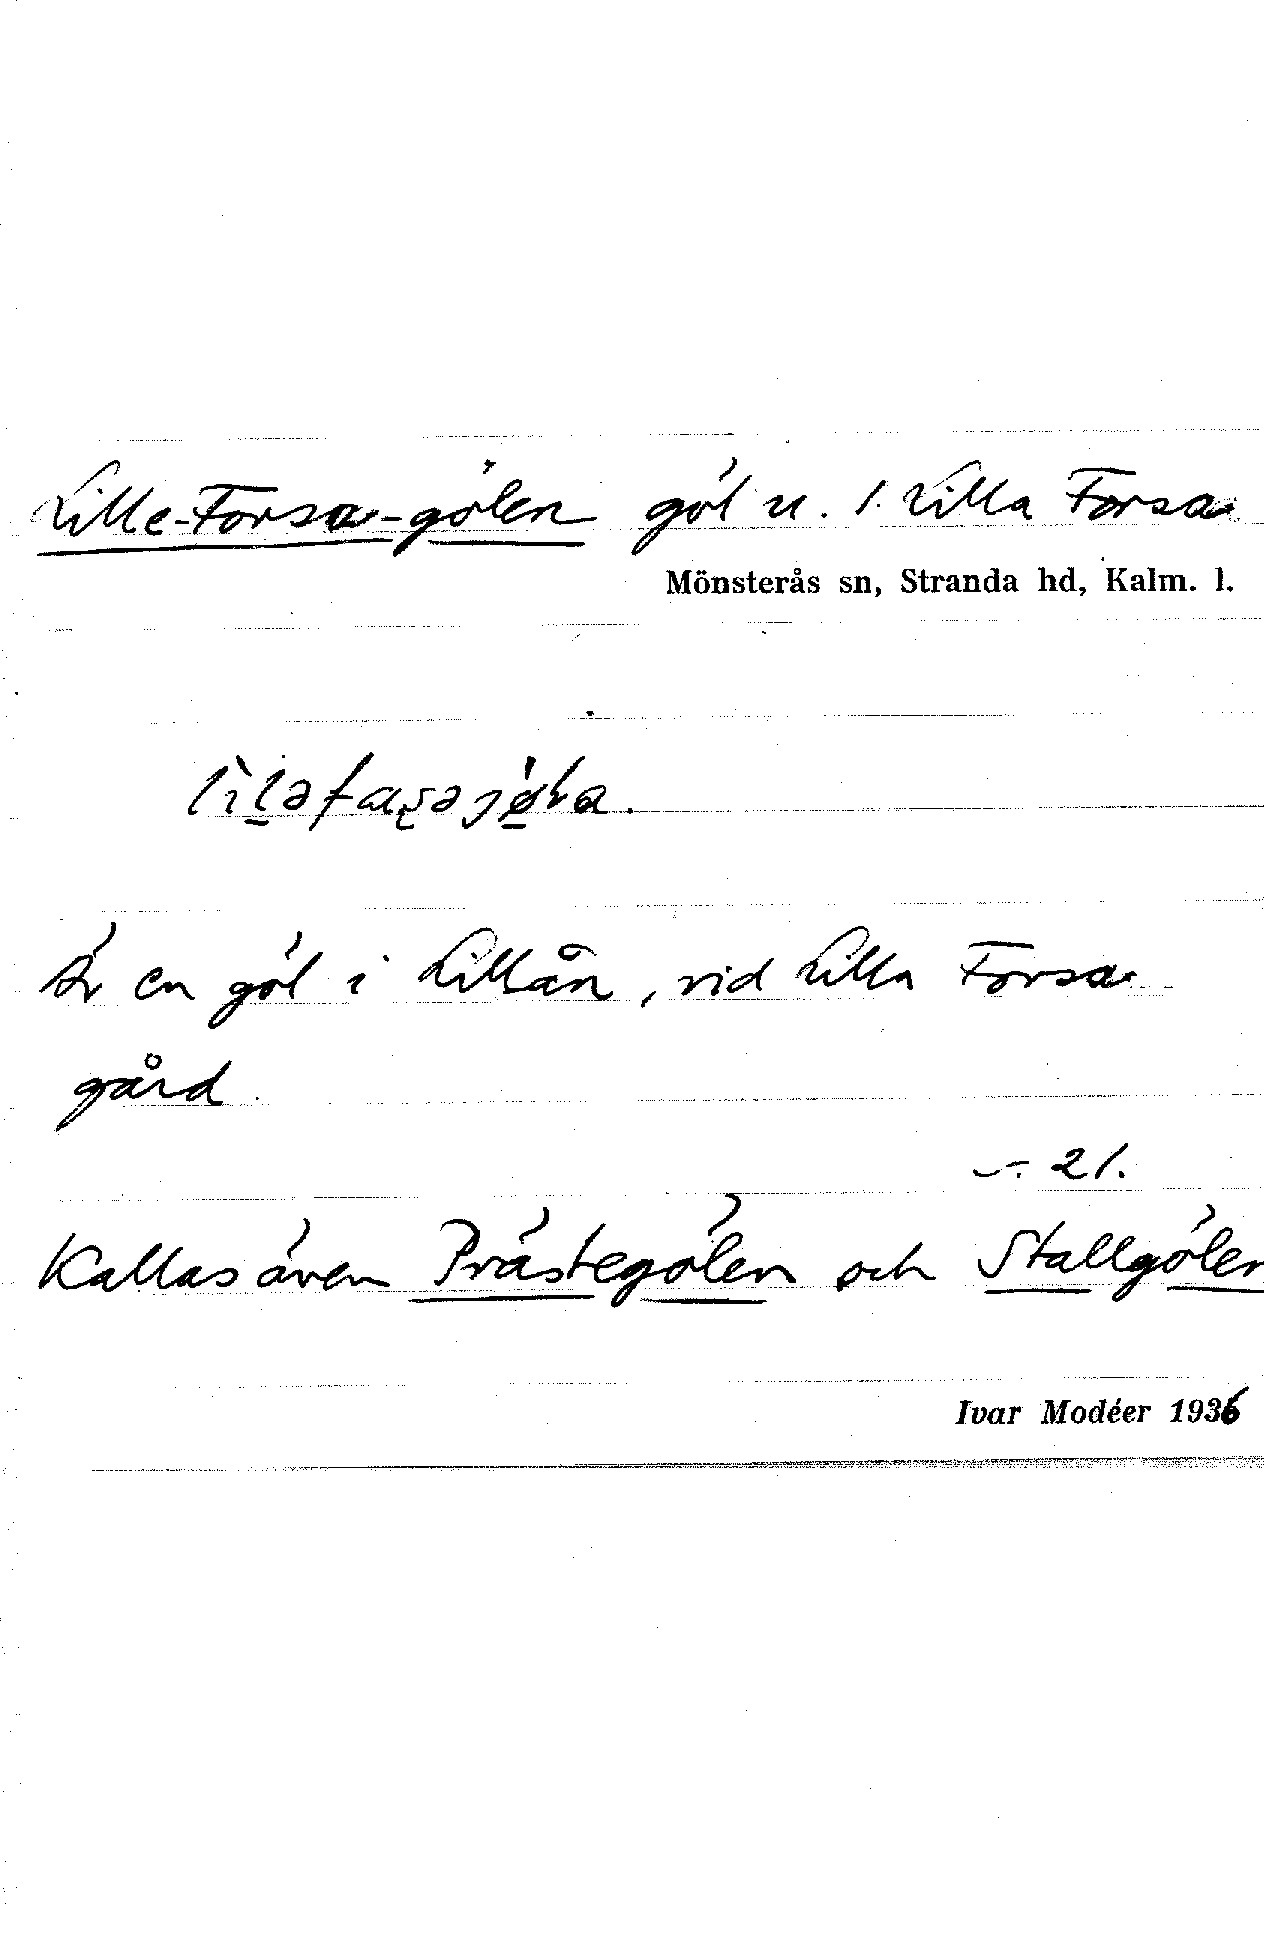 Lille-Forsa-gölen göl u. 1. Lilla Forsa
Mönsterås sn, Stranda hd, Kalm. l.
Är en göl i Lillån, vid Lilla Forsa
gård.
21.
Kallas även Prästegölen och Stallgölen
Ivar Modéer 1936